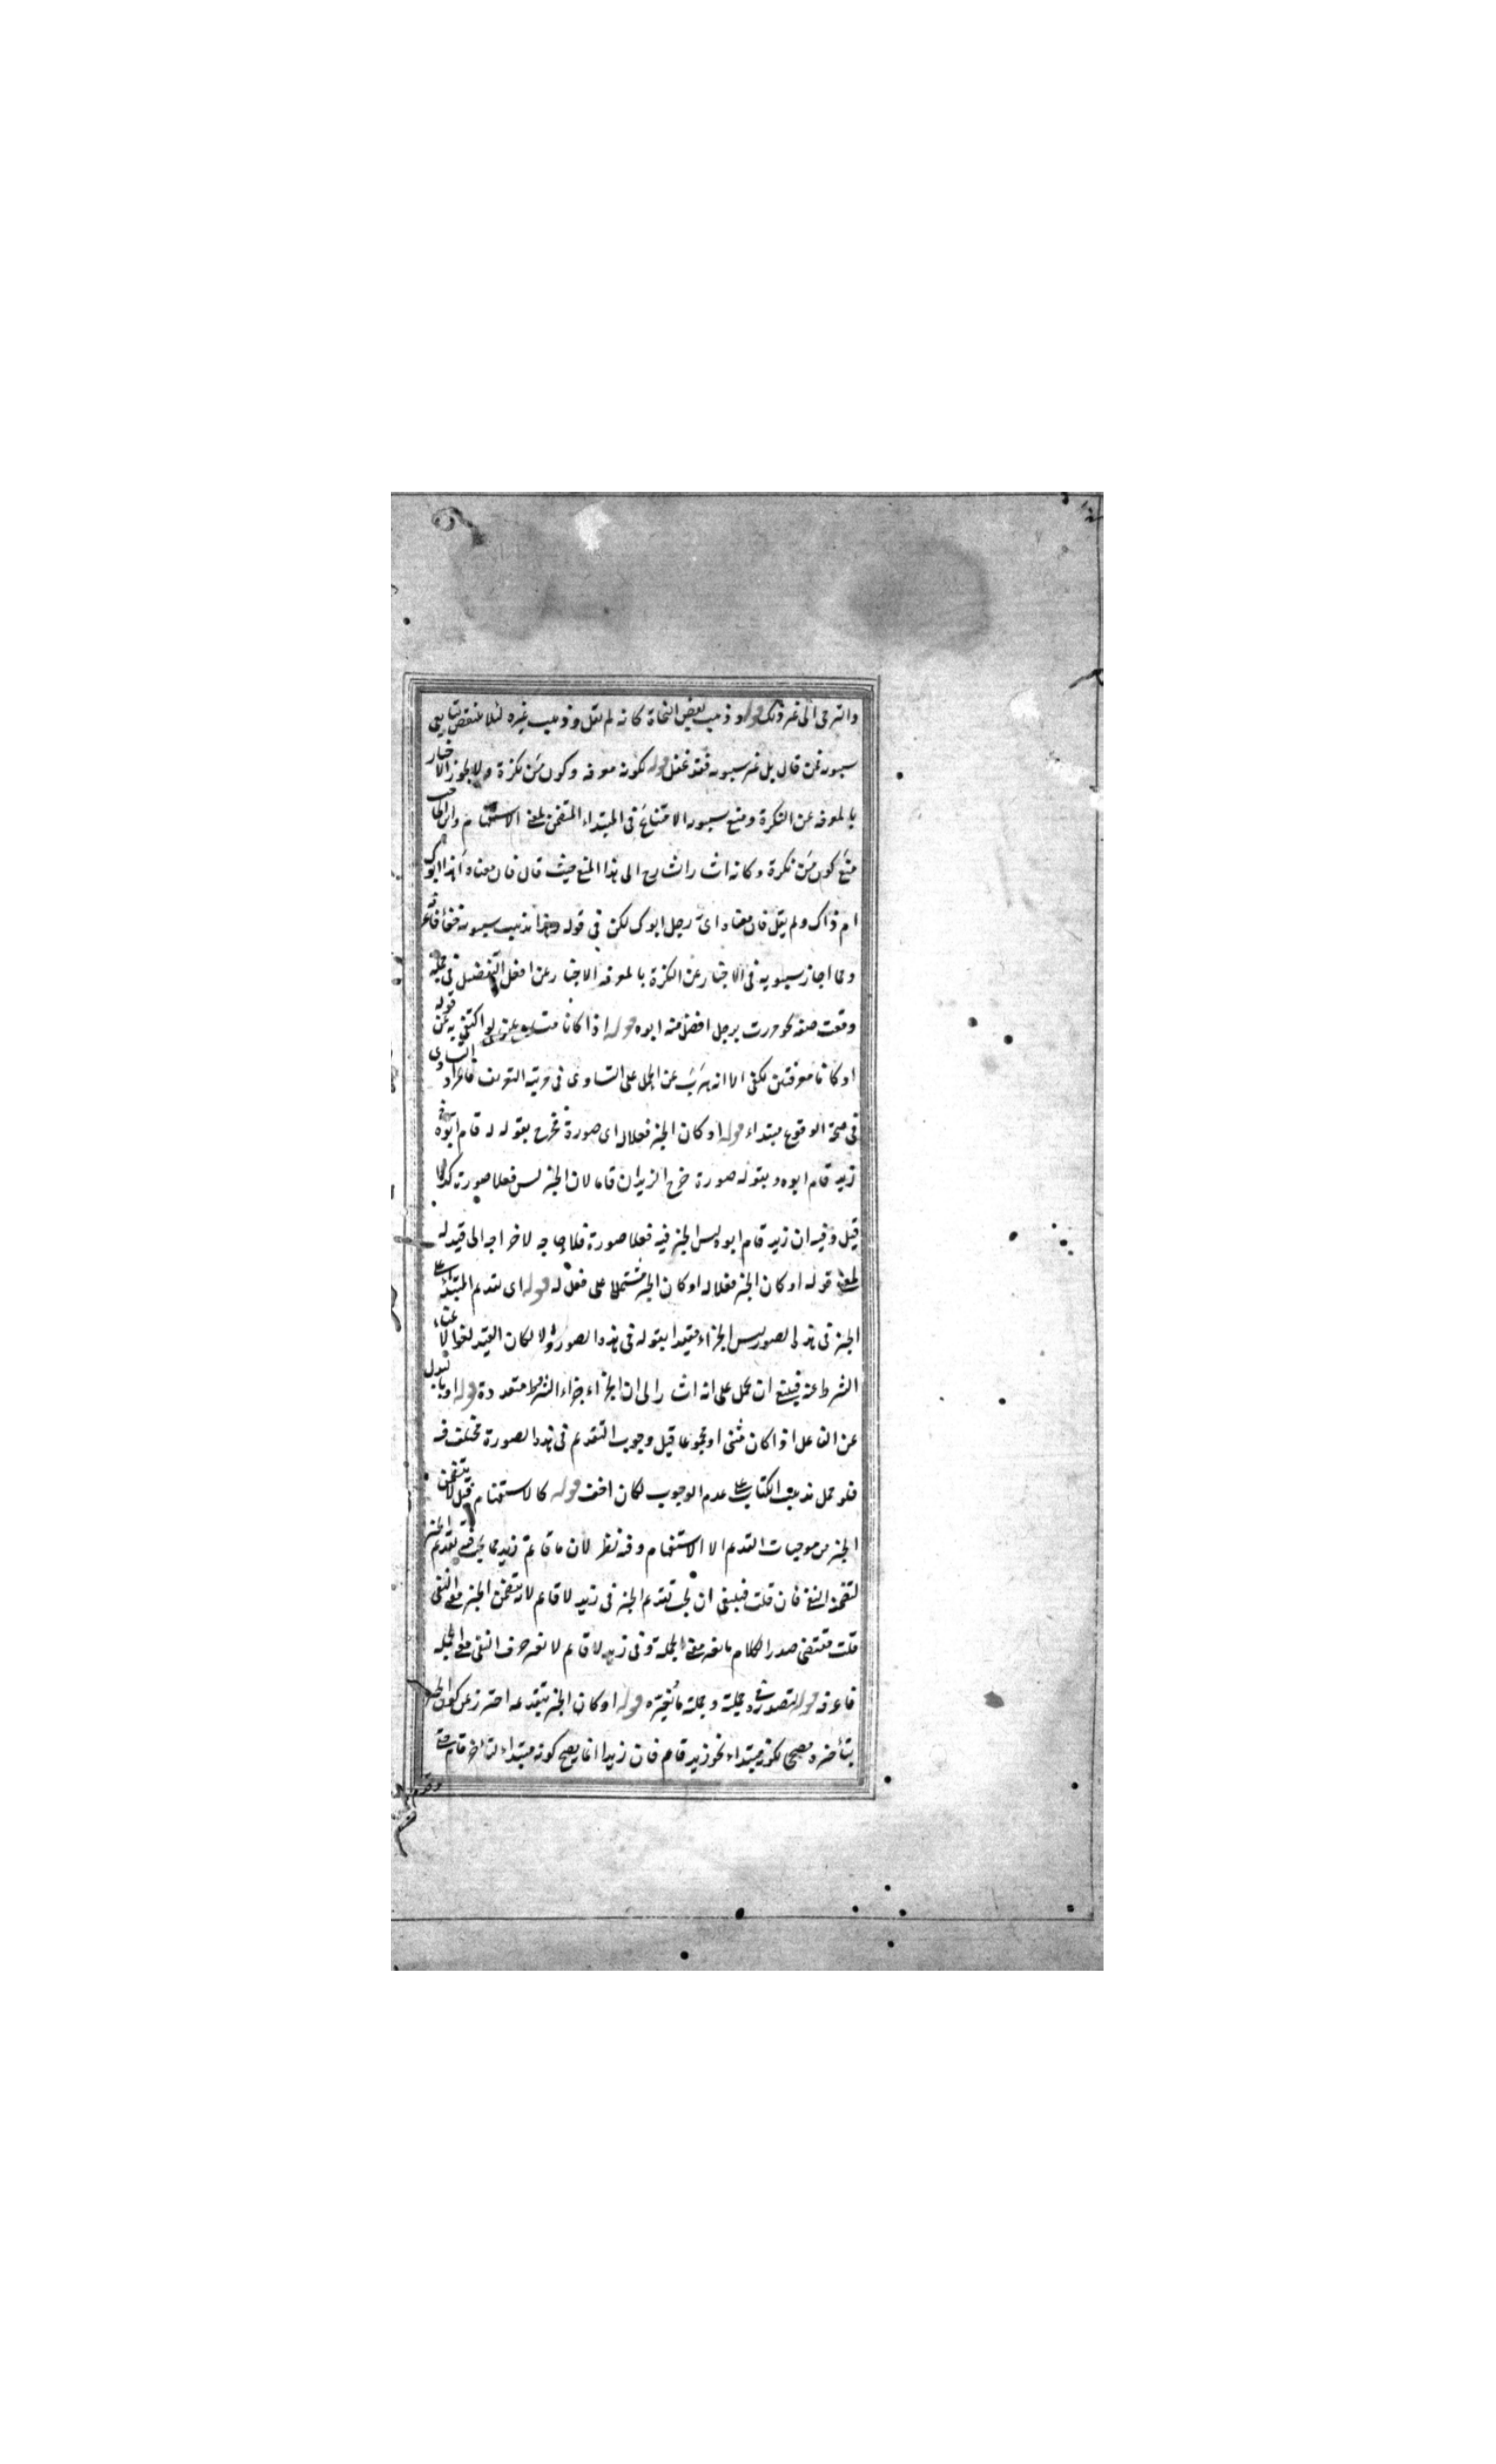 والترقى الى غير ذلك قوله وذهب بعض النحاة كانه لم يقل وذهب غيره لئلا ينتقض بتابعى
سيبويه فمن قال بل غير سيبويه فقد غفل قوله لكونه معرفة وكون من نكرة ولا يجوز الاخبار
بالمعرفة عن النكرة ومنع سيبويه الامتناع فى المبتداء المتضمن لمعنى الاستفهام وابن الحاجب
منع كون من نكرة وكانه اشار الشارح الى هذا المنع حيث قال فان معناه اهذا ابوك
ام ذاك ولم يقل فان معناه اى رجل ابوك لكن فى قوله وهذا مذهب سيبويه خفأ فاعرفه
ومما اجاز سيبويه فى الاخبار عن النكرة بالمعرفة الاخبار عن افعل التفضيل فى جملة
وقعت صفة نحو مررت برجل افضل منه ابوه قوله اذا كانا متساويين لو اكتفى به عن قوله
او كانا معرفتين لكفى الا انه هرب عن الحمل على التساوى فى مرتبة التعريف فاعرف والتساوى
فى صحة الوقوع مبتداء قوله او كان الخبر فعلا له اى صورة فخرج بقوله له قام ابوه فى
زيد قام ابوه وبقوله صورة خرج الزيدان قاما لان الخبر ليس فعلا صورة كذا
قيل وفيه ان زيد قام ابوه ليس الخبر فيه فعلا صورة فلا حاجة لاخراجه الى قيد له
لمعنى قوله او كان الخبر فعلا له او كان الخبر مشتملا على فعل له قوله اى تقديم المبتداء على
الخبر فى هذه الصور ليس الجزاء مقيدا بقوله فى هذه الصور والا لكان القيد لغوا لاغناء
الشرط عنه فينبغى ان يحمل على انه اشار الى ان الجزاء جزاء الشروط متعددة قوله او بالبدل
عن الفاعل اذا كان مثنى او مجموعا قيل وجوب التقديم فى هذه الصورة مختلف فيه
فلو حمل مذهب الكتاب على عدم الوجوب لكان اخف قوله كالاستفهام قيل لا يتضمن
الخبر من موجبات التقديم الا الاستفهام وفيه نظر لان ما قائم زيد مما يجب فيه تقديم الخبر
لتضمنه النفى فان قلت فينبغى ان يجب تقديم الخبر فى زيد لا قائم لانه يتضمن الخبر معنى النفى
قلت مقتضى صدر الكلام ما يغير معنى الجملة وفى زيد لا قائم لا يغير حرف النفى معنى الجملة
فاعرفه قوله لتصدره فى جملة وجملة ما تغيره قوله او كان الخبر بتقديمه احترز عن كون الخبر
بتأخره مصححا لكونه مبتداء نحو زيد قام فان زيدا انما يصح كونه مبتداء لتاخر قام حتى